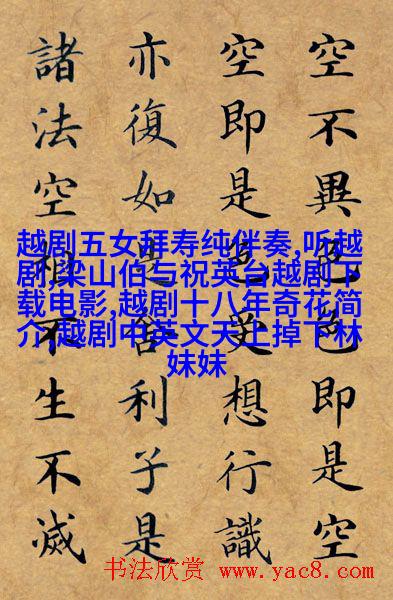 空不異色色即是空
空即是色受想行識
亦復如是舍利子是
諸法空相不生不滅
越剧五女拜寿纯伴奏,听越
剧,梁山伯与祝英台越剧 下
载电影,越剧十八年奇花简
介,越剧中英文天上掉下林
妹妹
书法欣赏 www.yac8.com